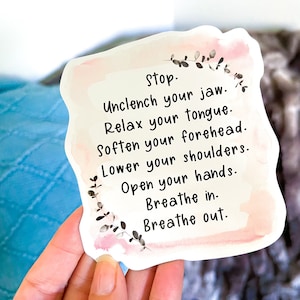 Stop.
Unclench your jaw.
Relax your tongue.
Soften your forehead.
Lower your shoulders.
Open your hands.
Breathe in.
Breathe out.